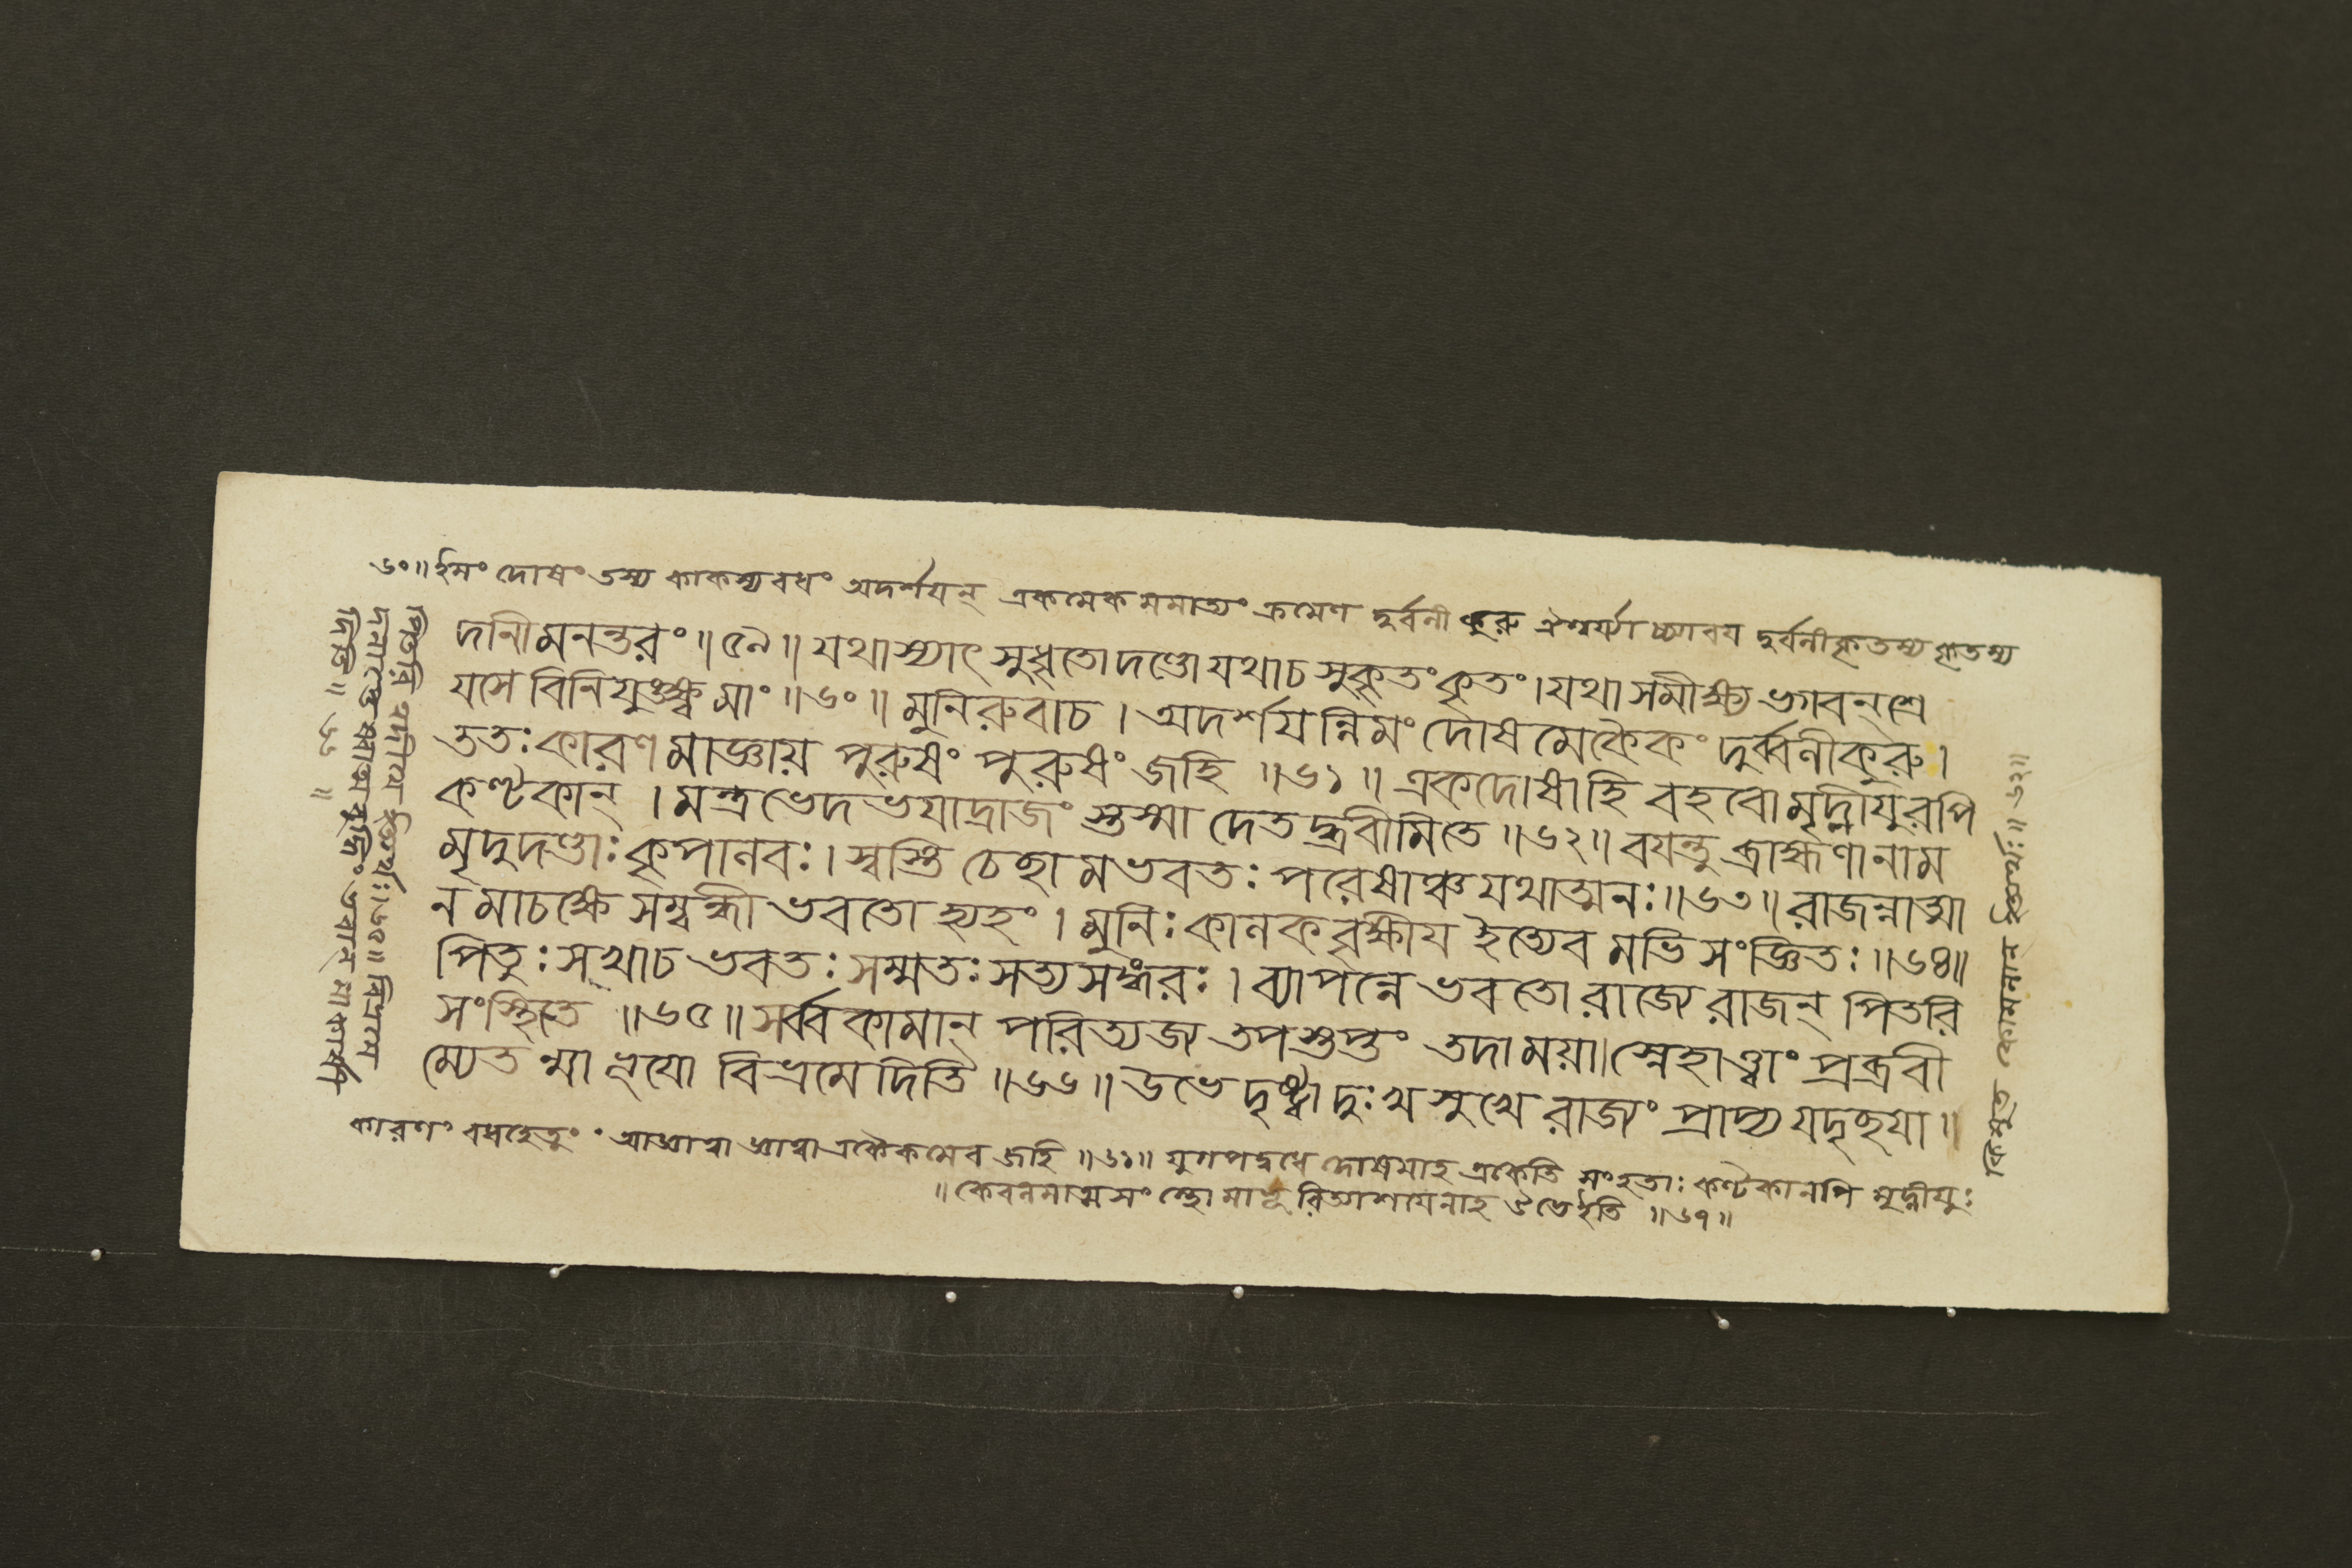 ৬০॥ইমং দোষং তস্য কাকস্যবধং অদর্শয়ন্ একমেকমমাত্যং ক্রমেণ দুর্বলীকুরু ঐশ্বর্য্যাচ্চ্যাবয় দুর্বলীকৃতস্য কৃতস্য
দানীমনন্তরং॥৫৯॥যথাস্যাৎ সুধৃতোদণ্ডোযথাচ সুকৃতংকৃতং।যথা সমীক্ষ্য ভগবন্ শ্রে
য়সে বিনিযুঙ্ক্ষ্ব মাং॥৬০॥মুনিরুবাচ। অদর্শয়ন্নিমং দোষমেকৈকং দুর্ব্বলীকুরু।
ততঃকারণমাজ্ঞায় পুরুষং পুরুষং জহি॥৬১॥একদোষাহি বহবোমৃদ্নীয়ুরপি
কণ্টকান্।মন্ত্রভেদভয়াদ্রাজং স্তস্মা দেতদ্ব্রবীমিতে॥৬২॥বয়ন্তু ব্রাহ্মণানাম
মৃদুদণ্ডাঃকৃপালবঃ।স্বস্তি চেচ্ছামভবতঃ পরেষাঞ্চযথাত্মনঃ॥৬৩॥রাজন্নাত্মা
নমাচক্ষে সম্বন্ধী ভবতো হ্যহং।মুনিঃ কালকবৃক্ষীয় ইত্যেব মভিসংজ্ঞিতঃ॥৬৪॥
পিতুঃসখাচ ভবতঃ সম্মতঃ সত্যসঙ্গরঃ।ব্যাপন্নে ভবতোরাজ্যে রাজন্ পিতরি
সংস্থিতে॥৬৫॥সর্ব্বকামান্ পরিত্যজ্য তপস্তপ্তং তদাময়া॥স্নেহাত্ত্বাং প্রব্রবী
ম্যেতন্মা ভূয়ো বিভ্রমেদিতি॥৬৬॥উভে দৃষ্ট্বা দুঃখসুখে রাজ্যং প্রাপ্য যদৃচ্ছয়া॥
কারণং বধহেতুং আজ্ঞায় জ্ঞাত্বাএকৈকমেব জহি॥৬১॥যুগপদ্বধে দোষমাহ একেতি সংহতাঃ কণ্টকানপি মৃদ্নীয়ুঃ
॥কেবলমাত্মসং
ভেইতি॥৬৭॥
কিমুত কোমলান্
॥৬২॥
পিতরি
ত্যর্থঃ।৬৫॥
॥৬৬॥